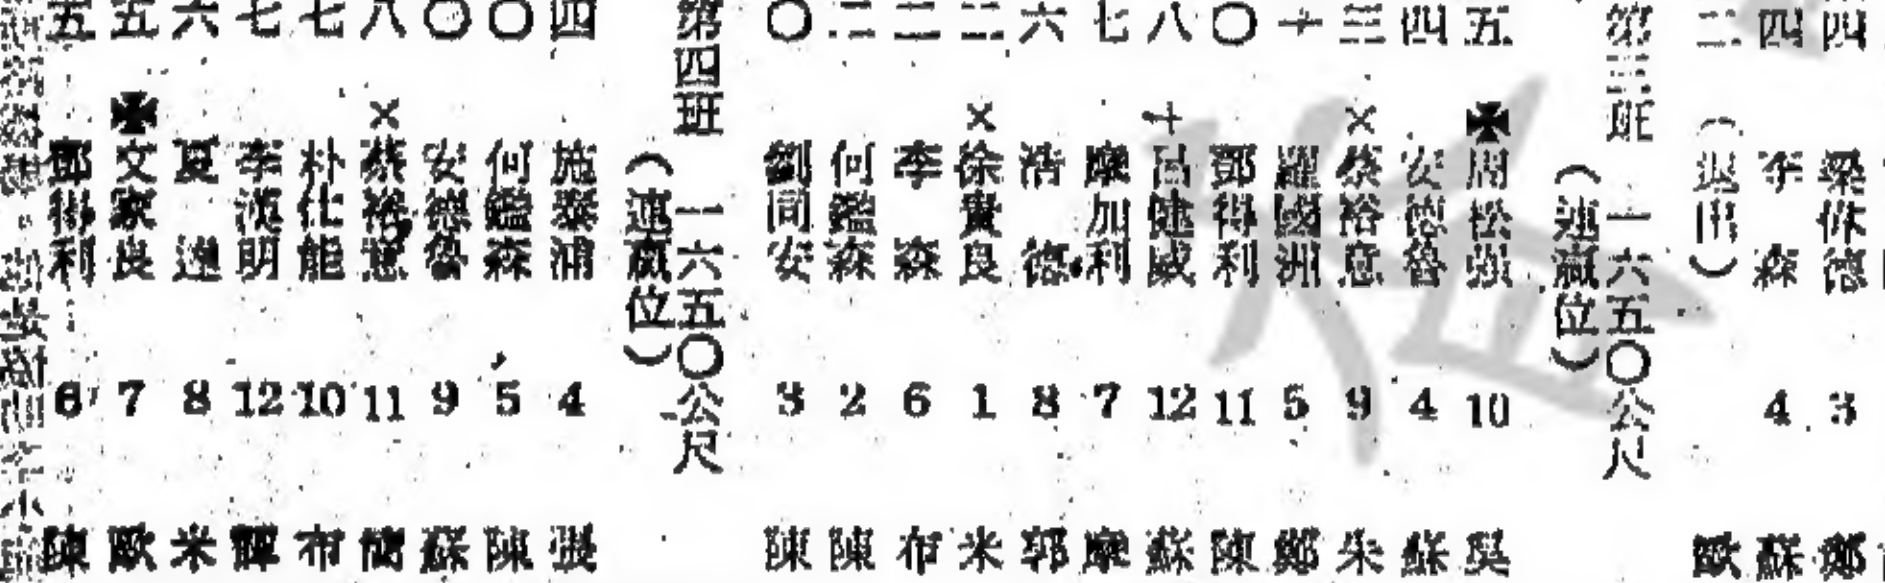 四 梁 德 3 鄭
四 李森 4 蘇
二 (退出) 歐
第三班 一六五〇公尺
(連贏位)
五 ✠周松 10 吳
四 安德魯 4 蘇
三 ×蔡裕意 9 朱
十 羅國洲 5 鄭
〇 鄧得利 11 陳
八 十呂健威 12 蘇
七 摩加利 7 摩
六 浩德 8 郭
二 ×徐貴良 1 米
二 李森 6 布
二 何鑑森 2 陳
〇 劉同安 3 陳
第四班 一六五〇公尺
(連贏位)
四 施泰浦 4 張
〇 何鑑森 5 陳
〇 安德魯 9 蘇
八 ×蔡裕意 11 簡
七 朴仕能 10 布
七 李漢明 12
六 夏 8 米
五 ✠文家良 7 歐
五 鄧得利 6 陳